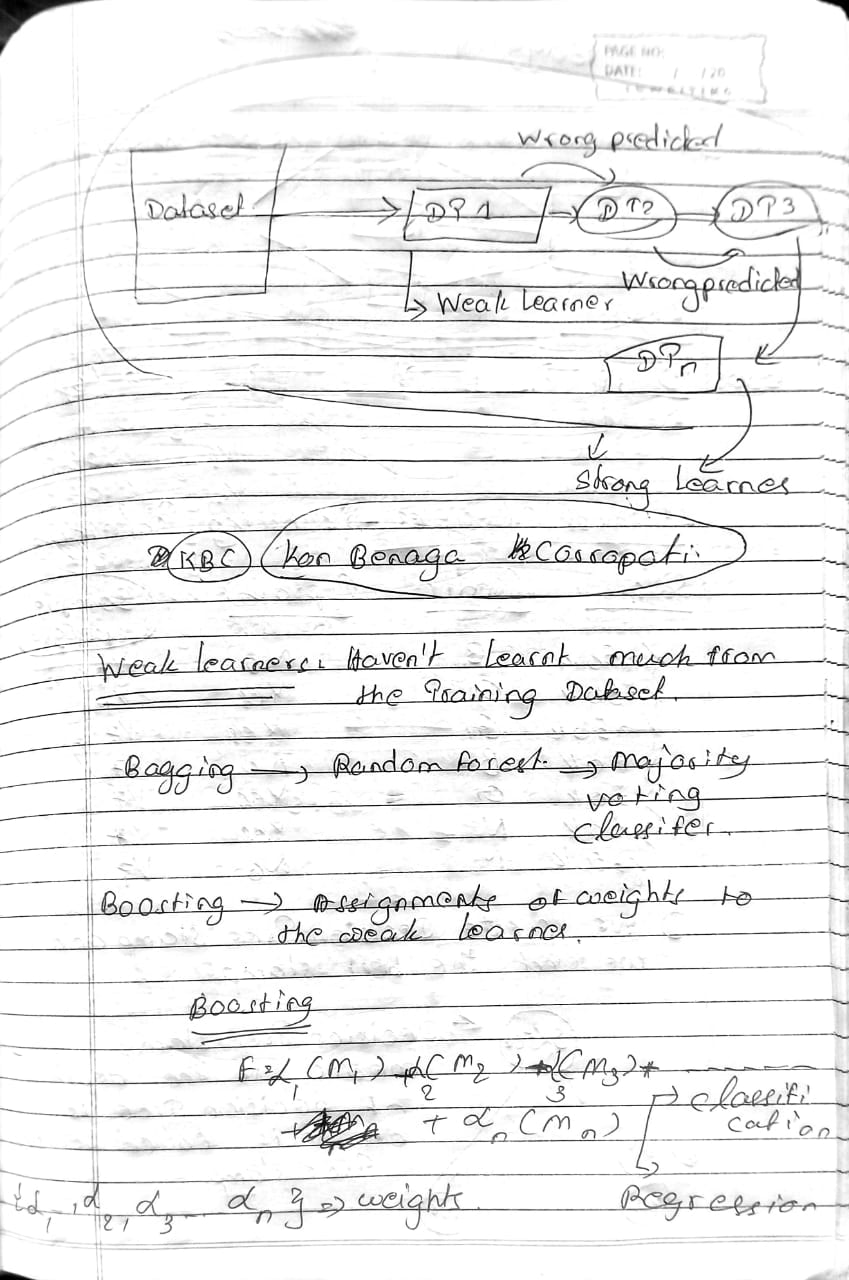 PAGE NO:
DATE: / /20
Wrong predicted
Dataset
DT 1
DT2
DT3
Wrong predicted
Weak Learner
DTn
Strong Learner
KBC Kon Benaga Caropati.
Weak learners: Haven't Learnt much from
the Training Dataset.
Bagging → Random forest. → Majority
voting
classifer.
Boosting → Assignments of weights to
the weak learner.
Boosting
F = α₁(M₁) + α₂(M₂) + α₃(M₃) + -------
+ αₙ(Mₙ)
classifi
cation
Regression
{α₁, α₂, α₃ - - αₙ} ⇒ weights.